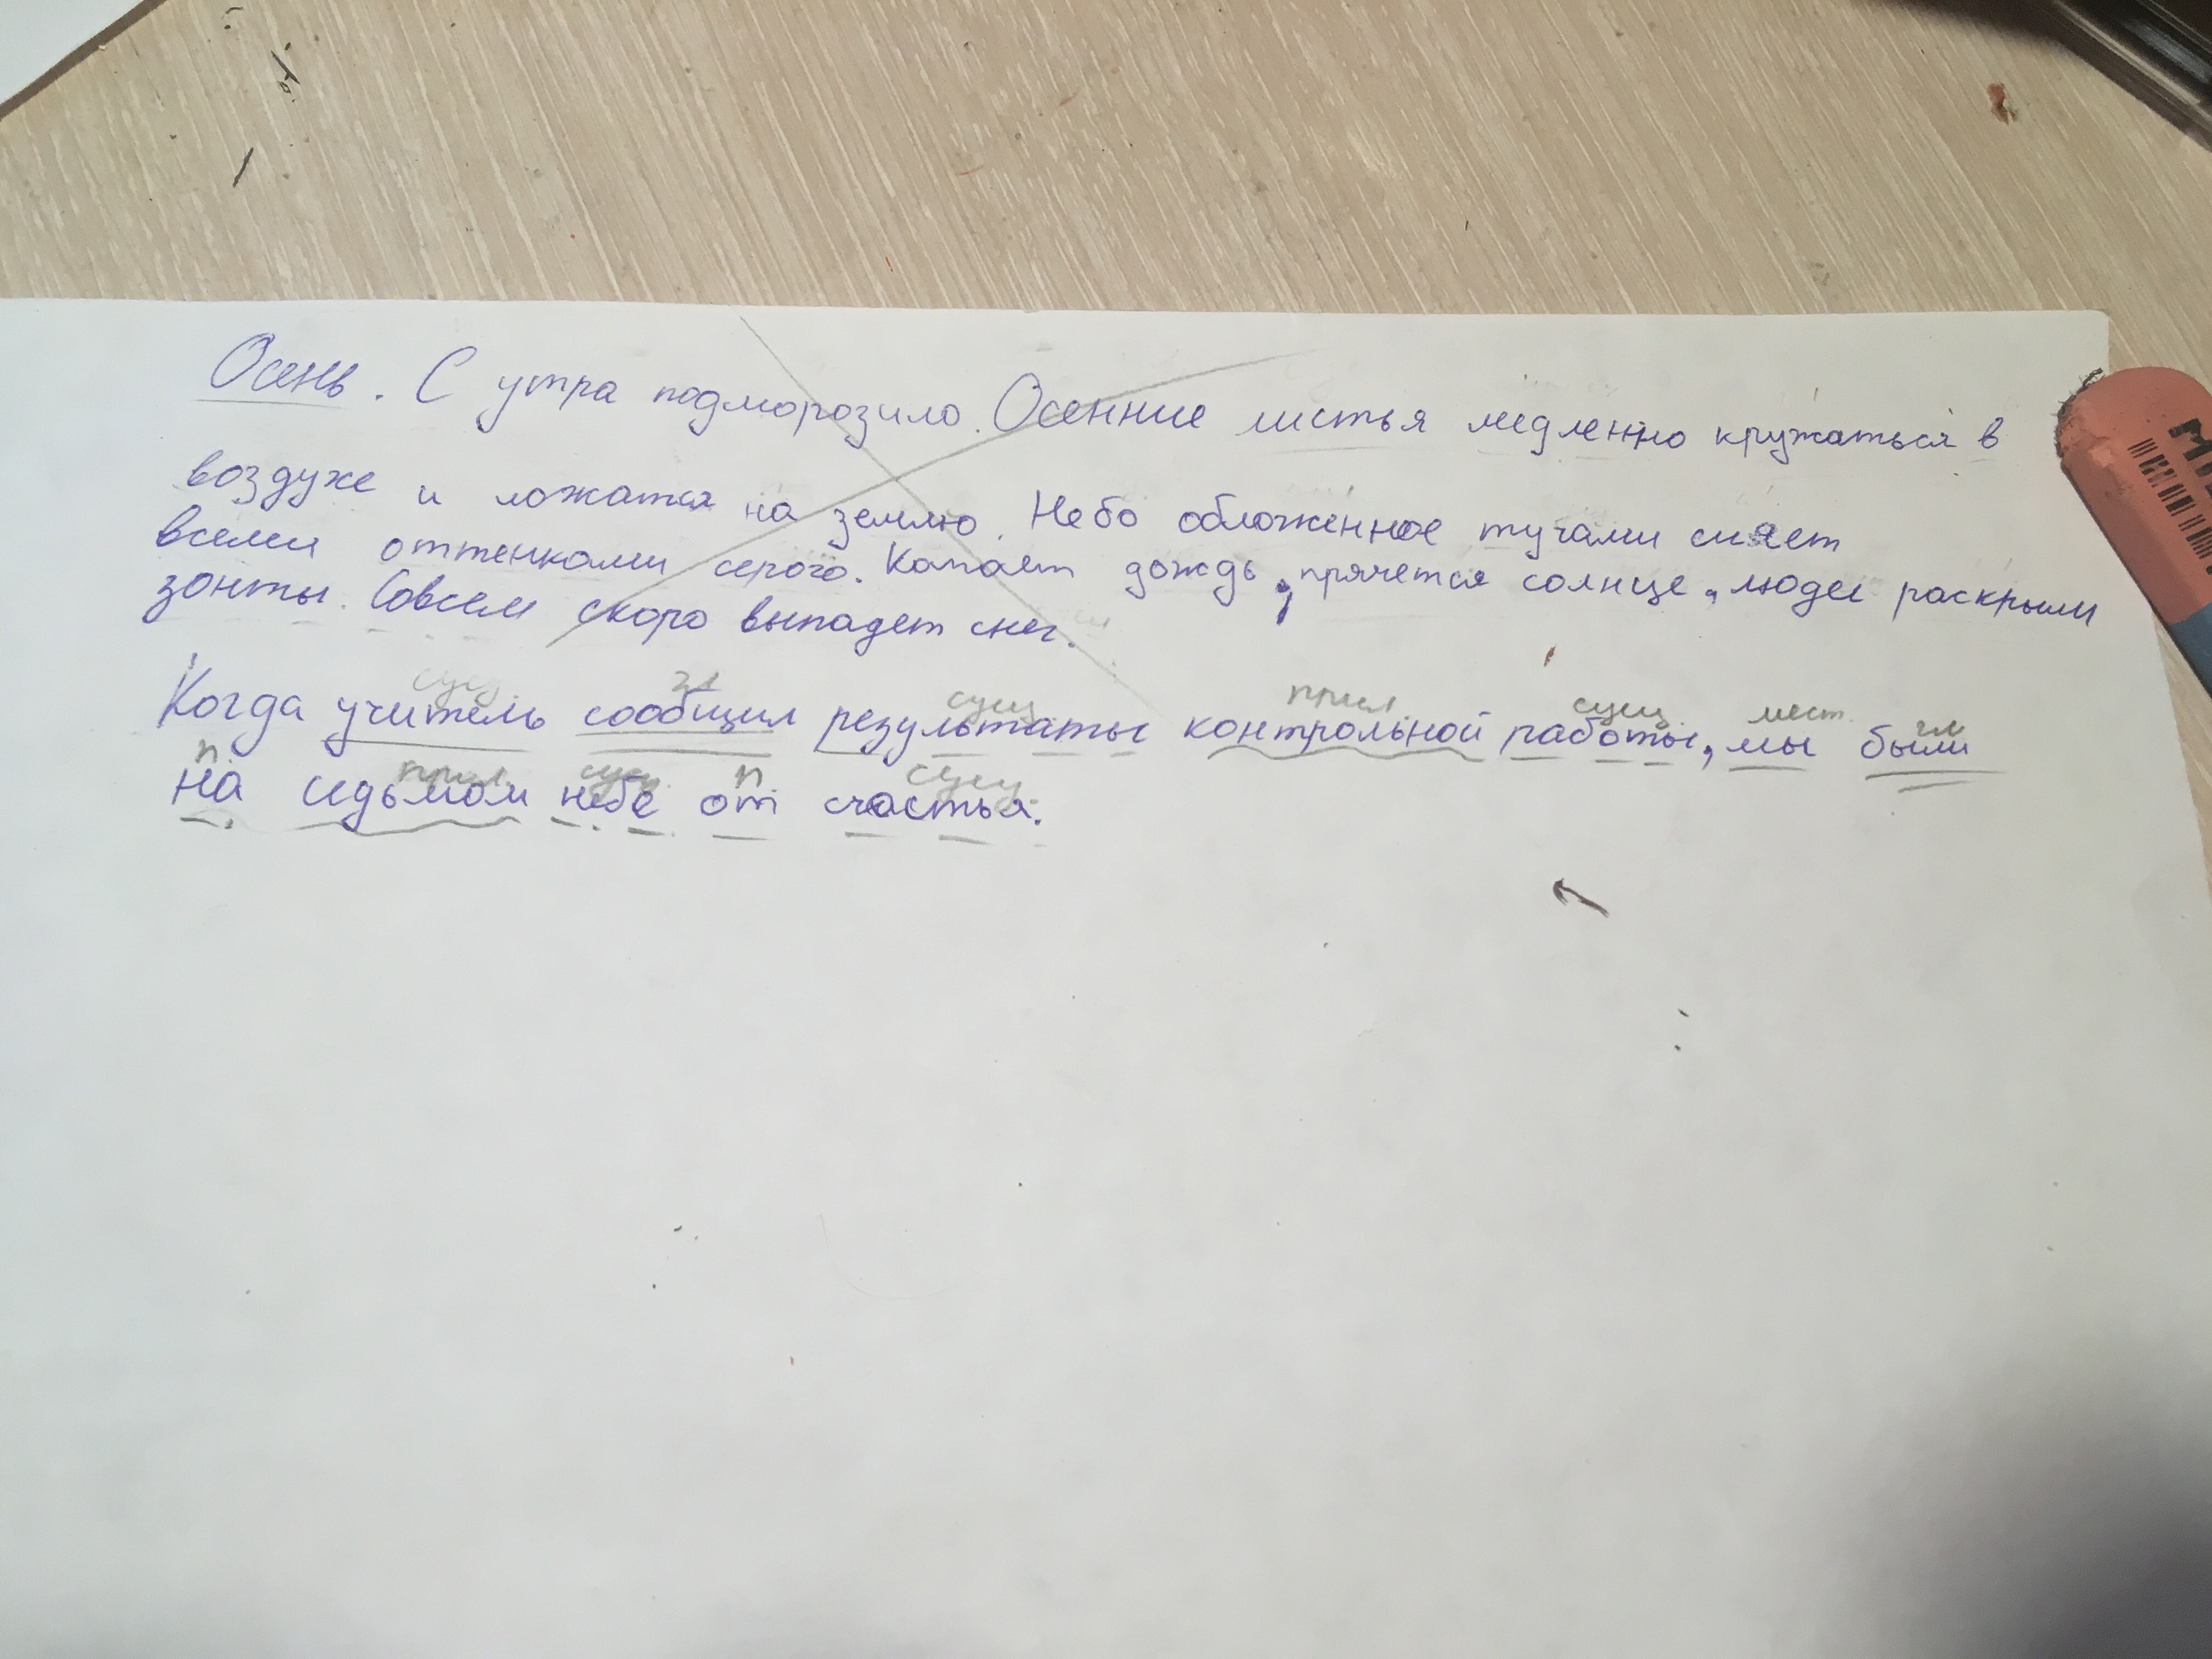 Осень. С утра подморозило. Осенние листья медленно кружаться в
воздухе и ложатся на землю. Небо обложенное тучами сияет
всеми оттенками серого. Капает дождь, прячется солнце, люди раскрыли
зонты. Совсем скоро выпадет снег.
сущ гл сущ прил сущ мест. гл
Когда учитель сообщил результаты контрольной работы, мы были
п. прил сущ. п сущ.
на седьмом небе от счастья.